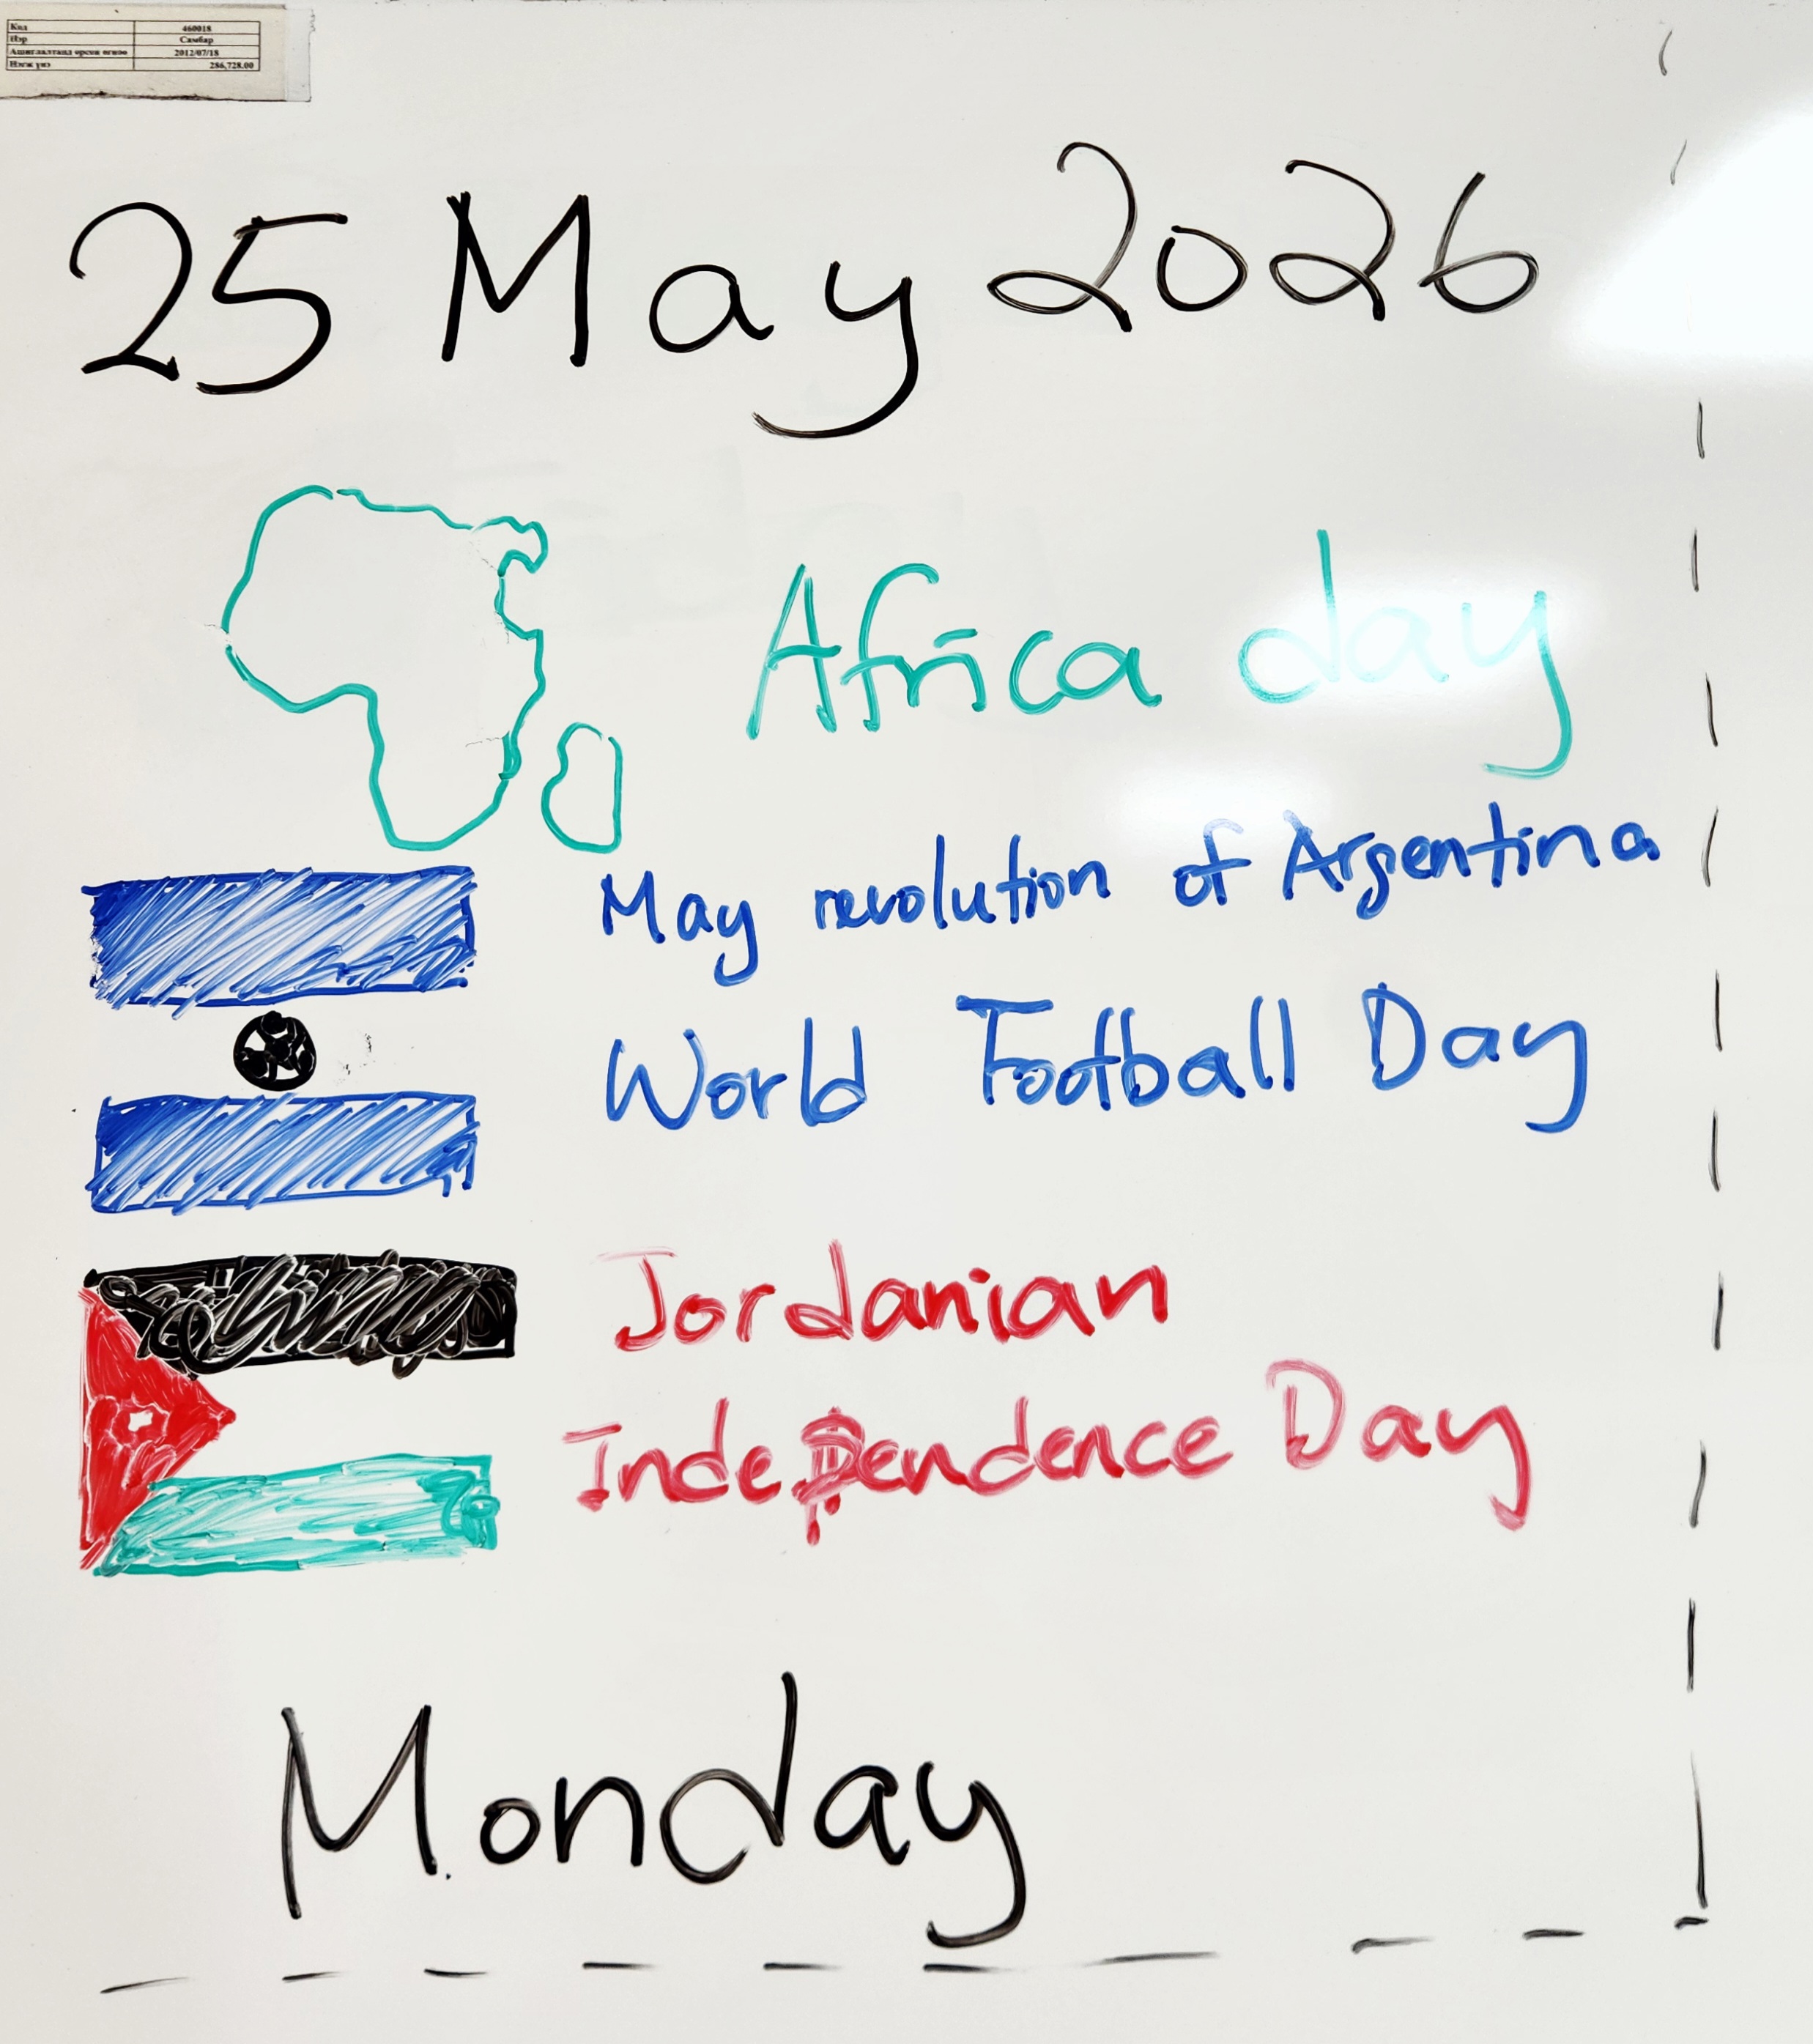 Код 460018
Нэр Самбар
Ашиглалтанд орсон огноо 2012/07/18
Нэгж үнэ 286,728.00
25 May 2026
Africa day
May revolution of Argentina
World Football Day
Jordanian
Independence Day
Monday